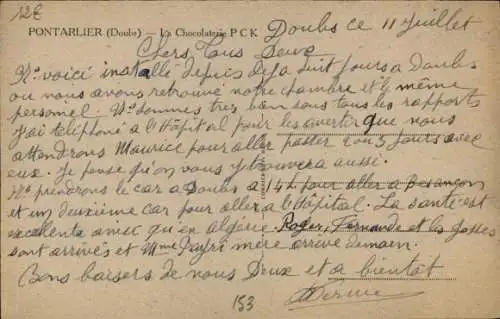 12€
PONTARLIER (Doubs) — La Chocolaterie P C K
Doubs ce 11 Juillet
Chers Tous Deux
Ns voici installé depuis déja huit jours a Doubs
ou nous avons retrouvé notre chambre et le même
personel. Ns sommes tres bien sous tous les rapports
J'ai téléphoné a l'Hôpital pour les avertir que nous
attendrons Maurice pour aller passer 2 ou 3 jours avec
eux. Je pense qu'on vous y trouvera aussi.
Ns prendrons le car a Doubs a 14h pour aller a Besançon
et un deuxième car pour aller a l'Hôpital. La santé est
excellente avec qu'en algérie. Roger, Fernande et les gosses
sont arrivés et Mme mère arrive demain.
Bons baisers de nous Deux et a bientôt
153